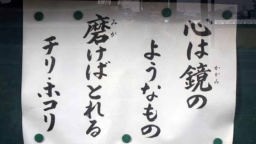 心は鏡の
ようなもの
磨けばとれる
チリ・ホコリ